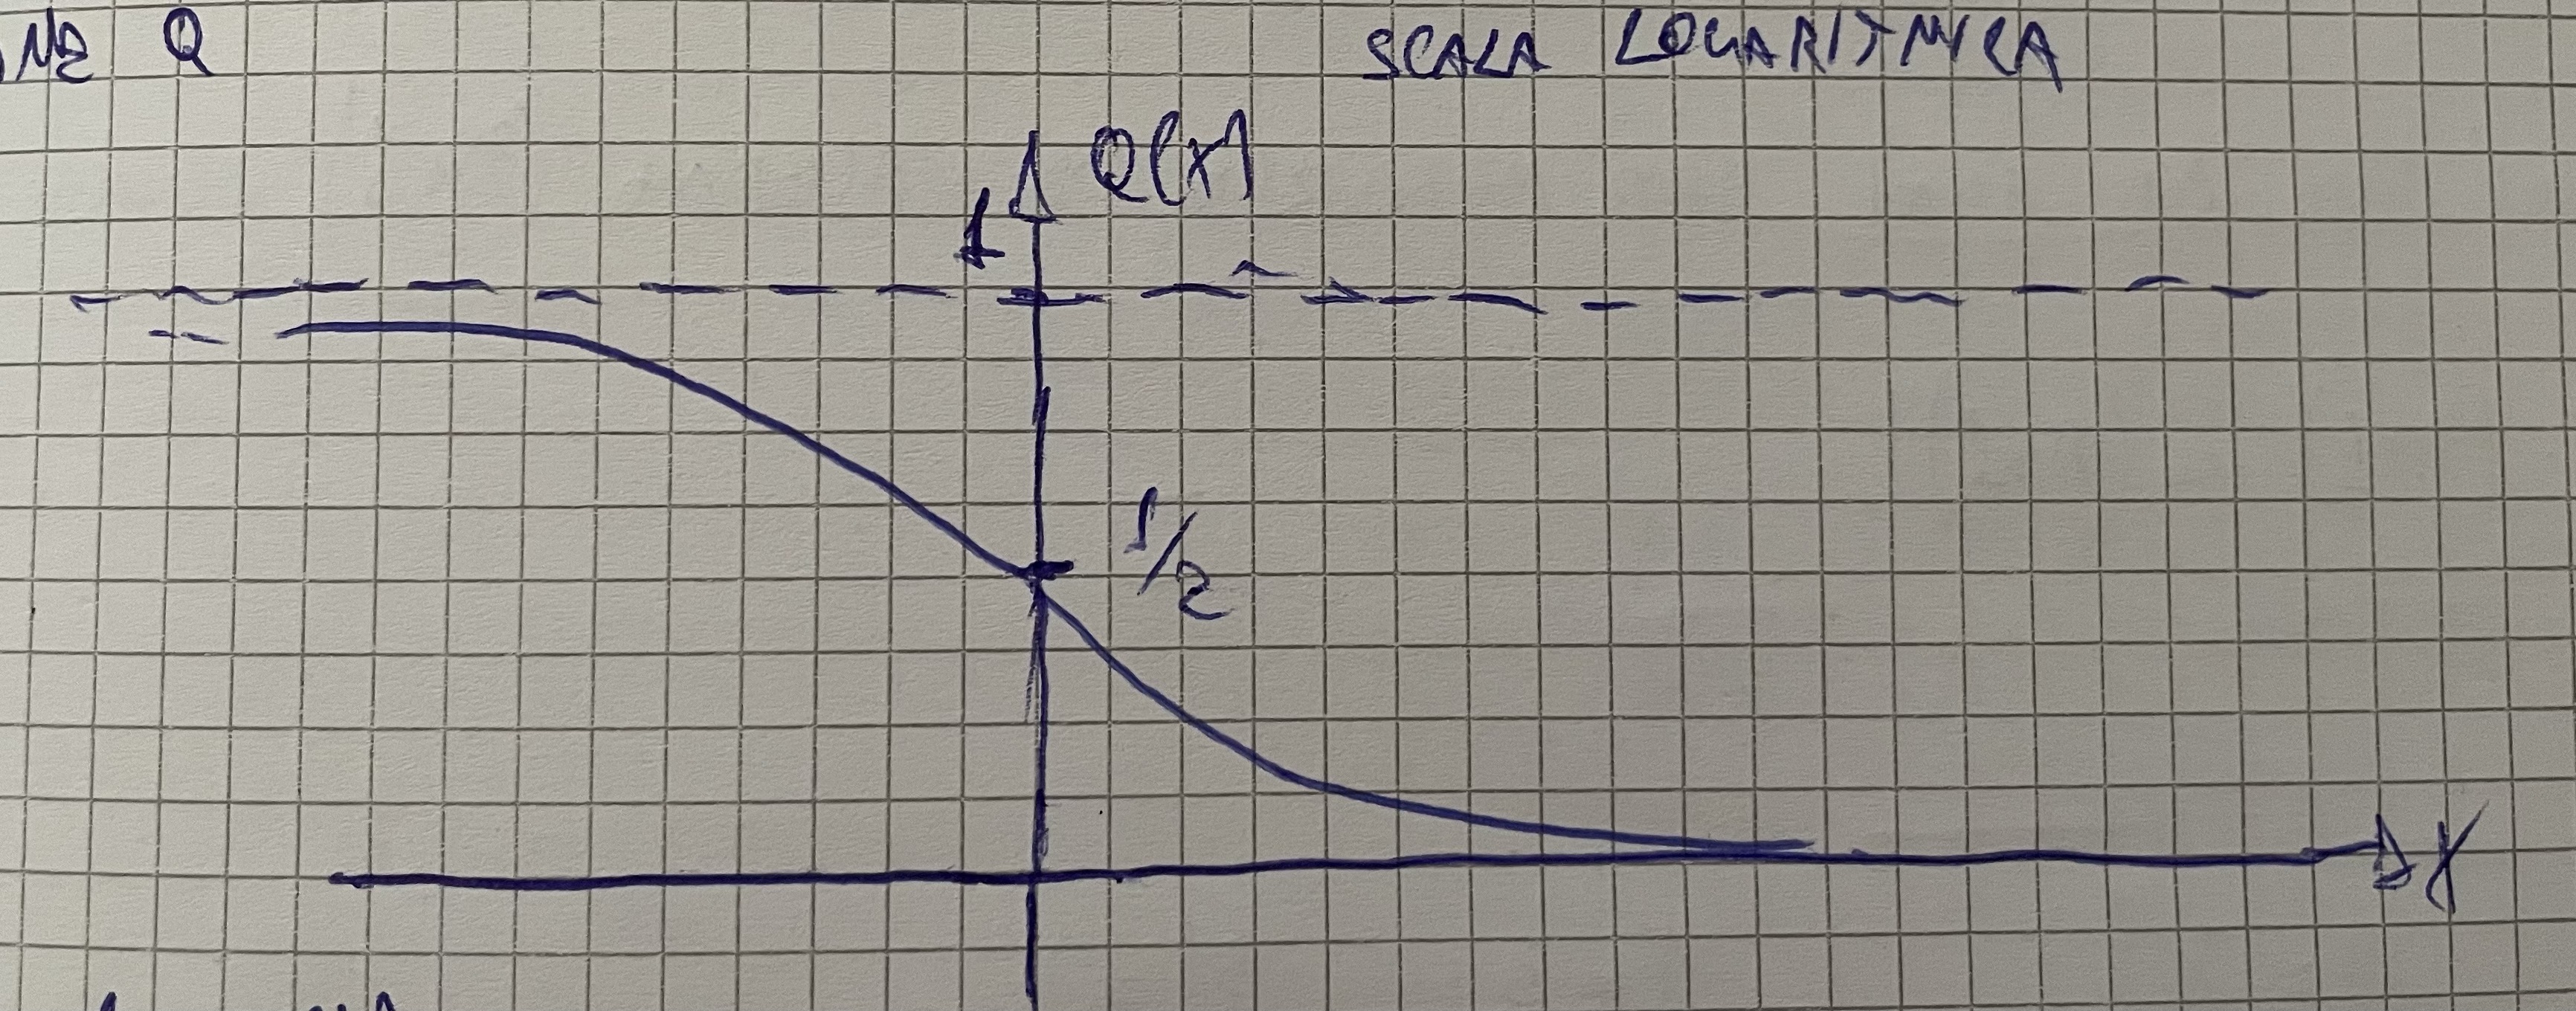 NE Q
SCALA LOGARITMICA
Q(x)
1
1/2
x